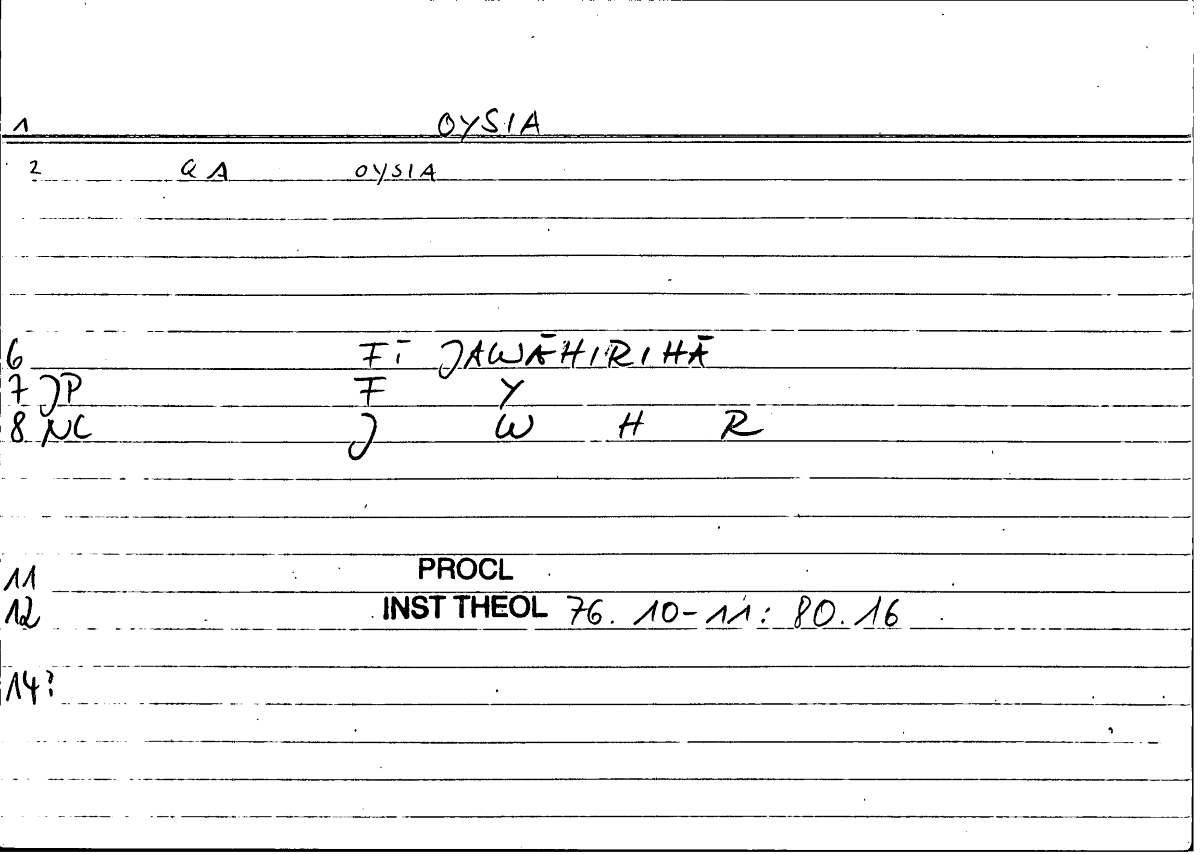 1 OYSIA
2 QA OYSIA
6 FĪ JAWĀHIRIHĀ
7 JP F Y
8 NC J W H R
11 PROCL
12 INST THEOL 76. 10-11: 80.16
14?